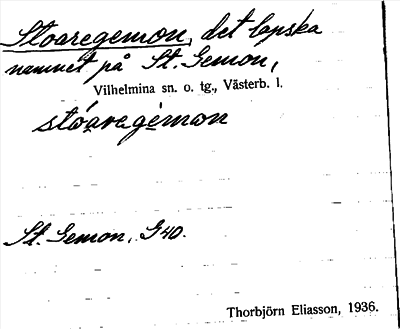 Stoaregemon, det lapska
namnet på St. Gemon,
Vilhelmina sn. o. tg., Västerb. l.
stóaregemon
St. Gemon, G 40.
Thorbjörn Eliasson, 1936.